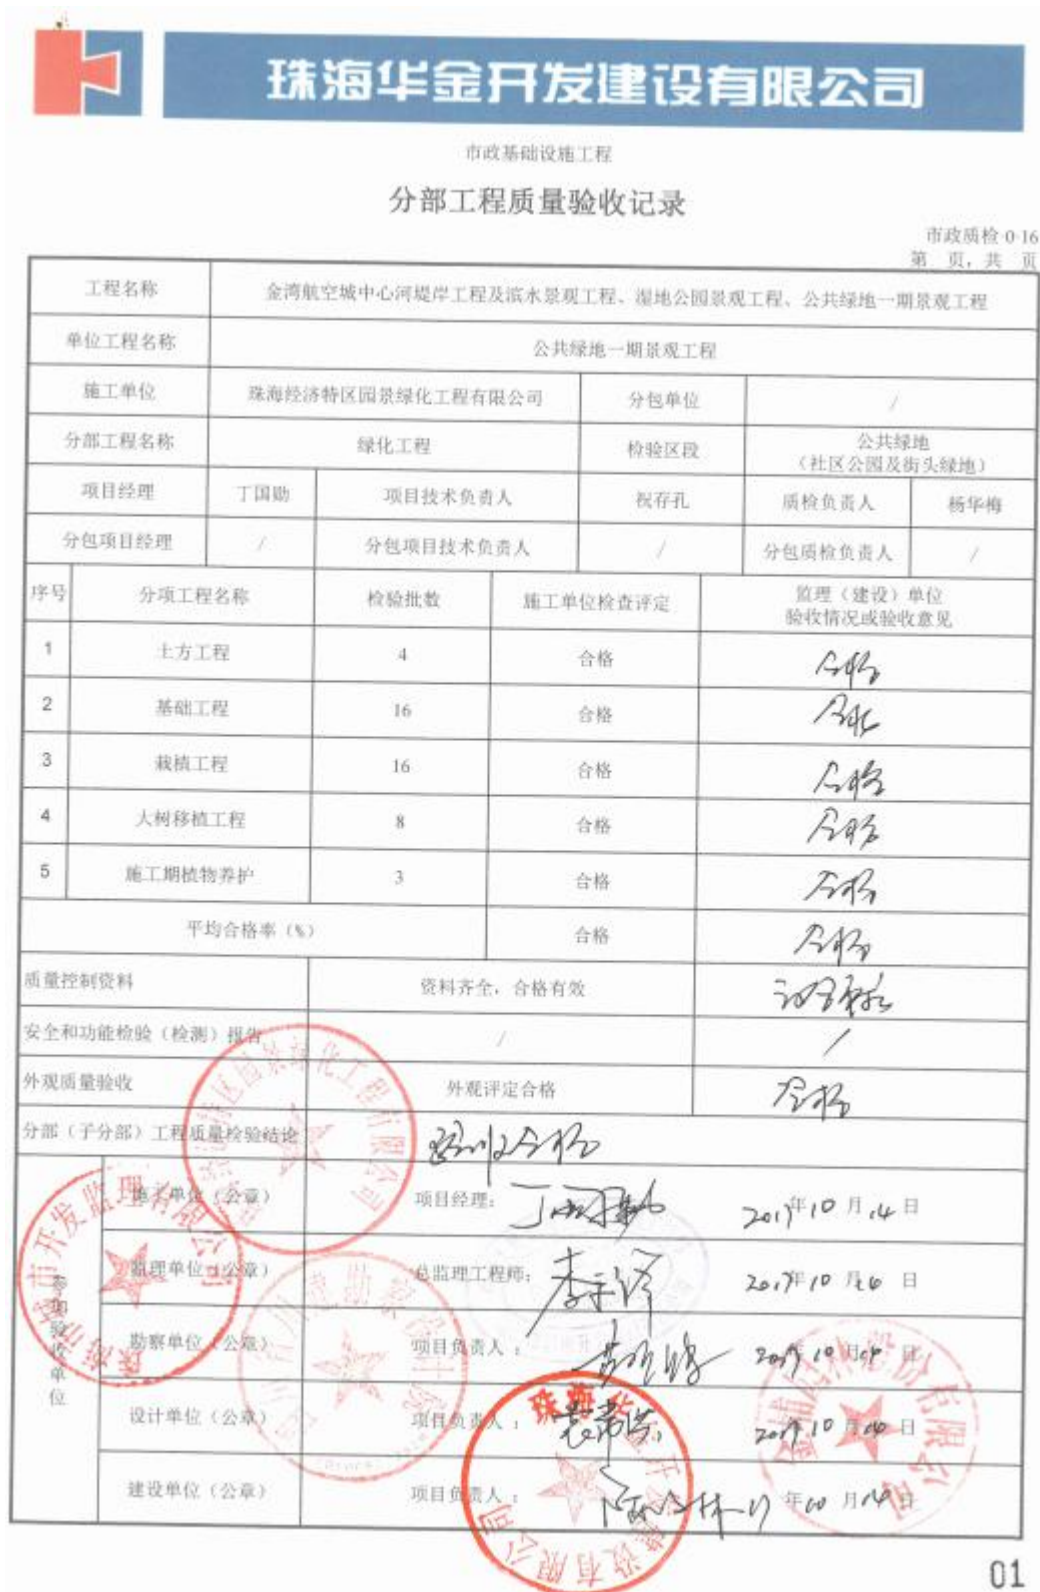 珠海华金开发建设有限公司
市政基础设施工程
分部工程质量验收记录
市政质检·0·16
第 页，共 页
工程名称 金湾航空城中心河堤岸工程及滨水景观工程、湿地公园景观工程、公共绿地一期景观工程
单位工程名称 公共绿地一期景观工程
施工单位 珠海经济特区园景绿化工程有限公司 分包单位 /
分部工程名称 绿化工程 检验区段 公共绿地
（社区公园及街头绿地）
项目经理 丁国勋 项目技术负责人 祝存孔 质检负责人 杨华梅
分包项目经理 / 分包项目技术负责人 / 分包质检负责人 /
序号 分项工程名称 检验批数 施工单位检查评定 监理（建设）单位
验收情况或验收意见
1 土方工程 4 合格 合格
2 基础工程 16 合格 合格
3 栽植工程 16 合格 合格
4 大树移植工程 8 合格 合格
5 施工期植物养护 3 合格 合格
平均合格率（%） 合格 合格
质量控制资料 资料齐全，合格有效
安全和功能检验（检测）报告 / /
外观质量验收 外观评定合格 合格
分部（子分部）工程质量检验结论 验收合格
参加验收单位
施工单位（公章） 项目经理：丁国勋 2017年10月14日
监理单位（公章） 总监理工程师： 年10月 日
勘察单位（公章） 项目负责人： 年10月 日
设计单位（公章） 项目负责人： 年10月 日
建设单位（公章） 项目负责人： 年10月 日
01